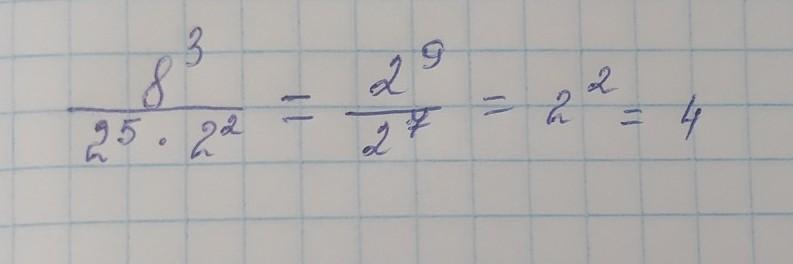 8³ / 2⁵ · 2² = 2⁹ / 2⁷ = 2² = 4